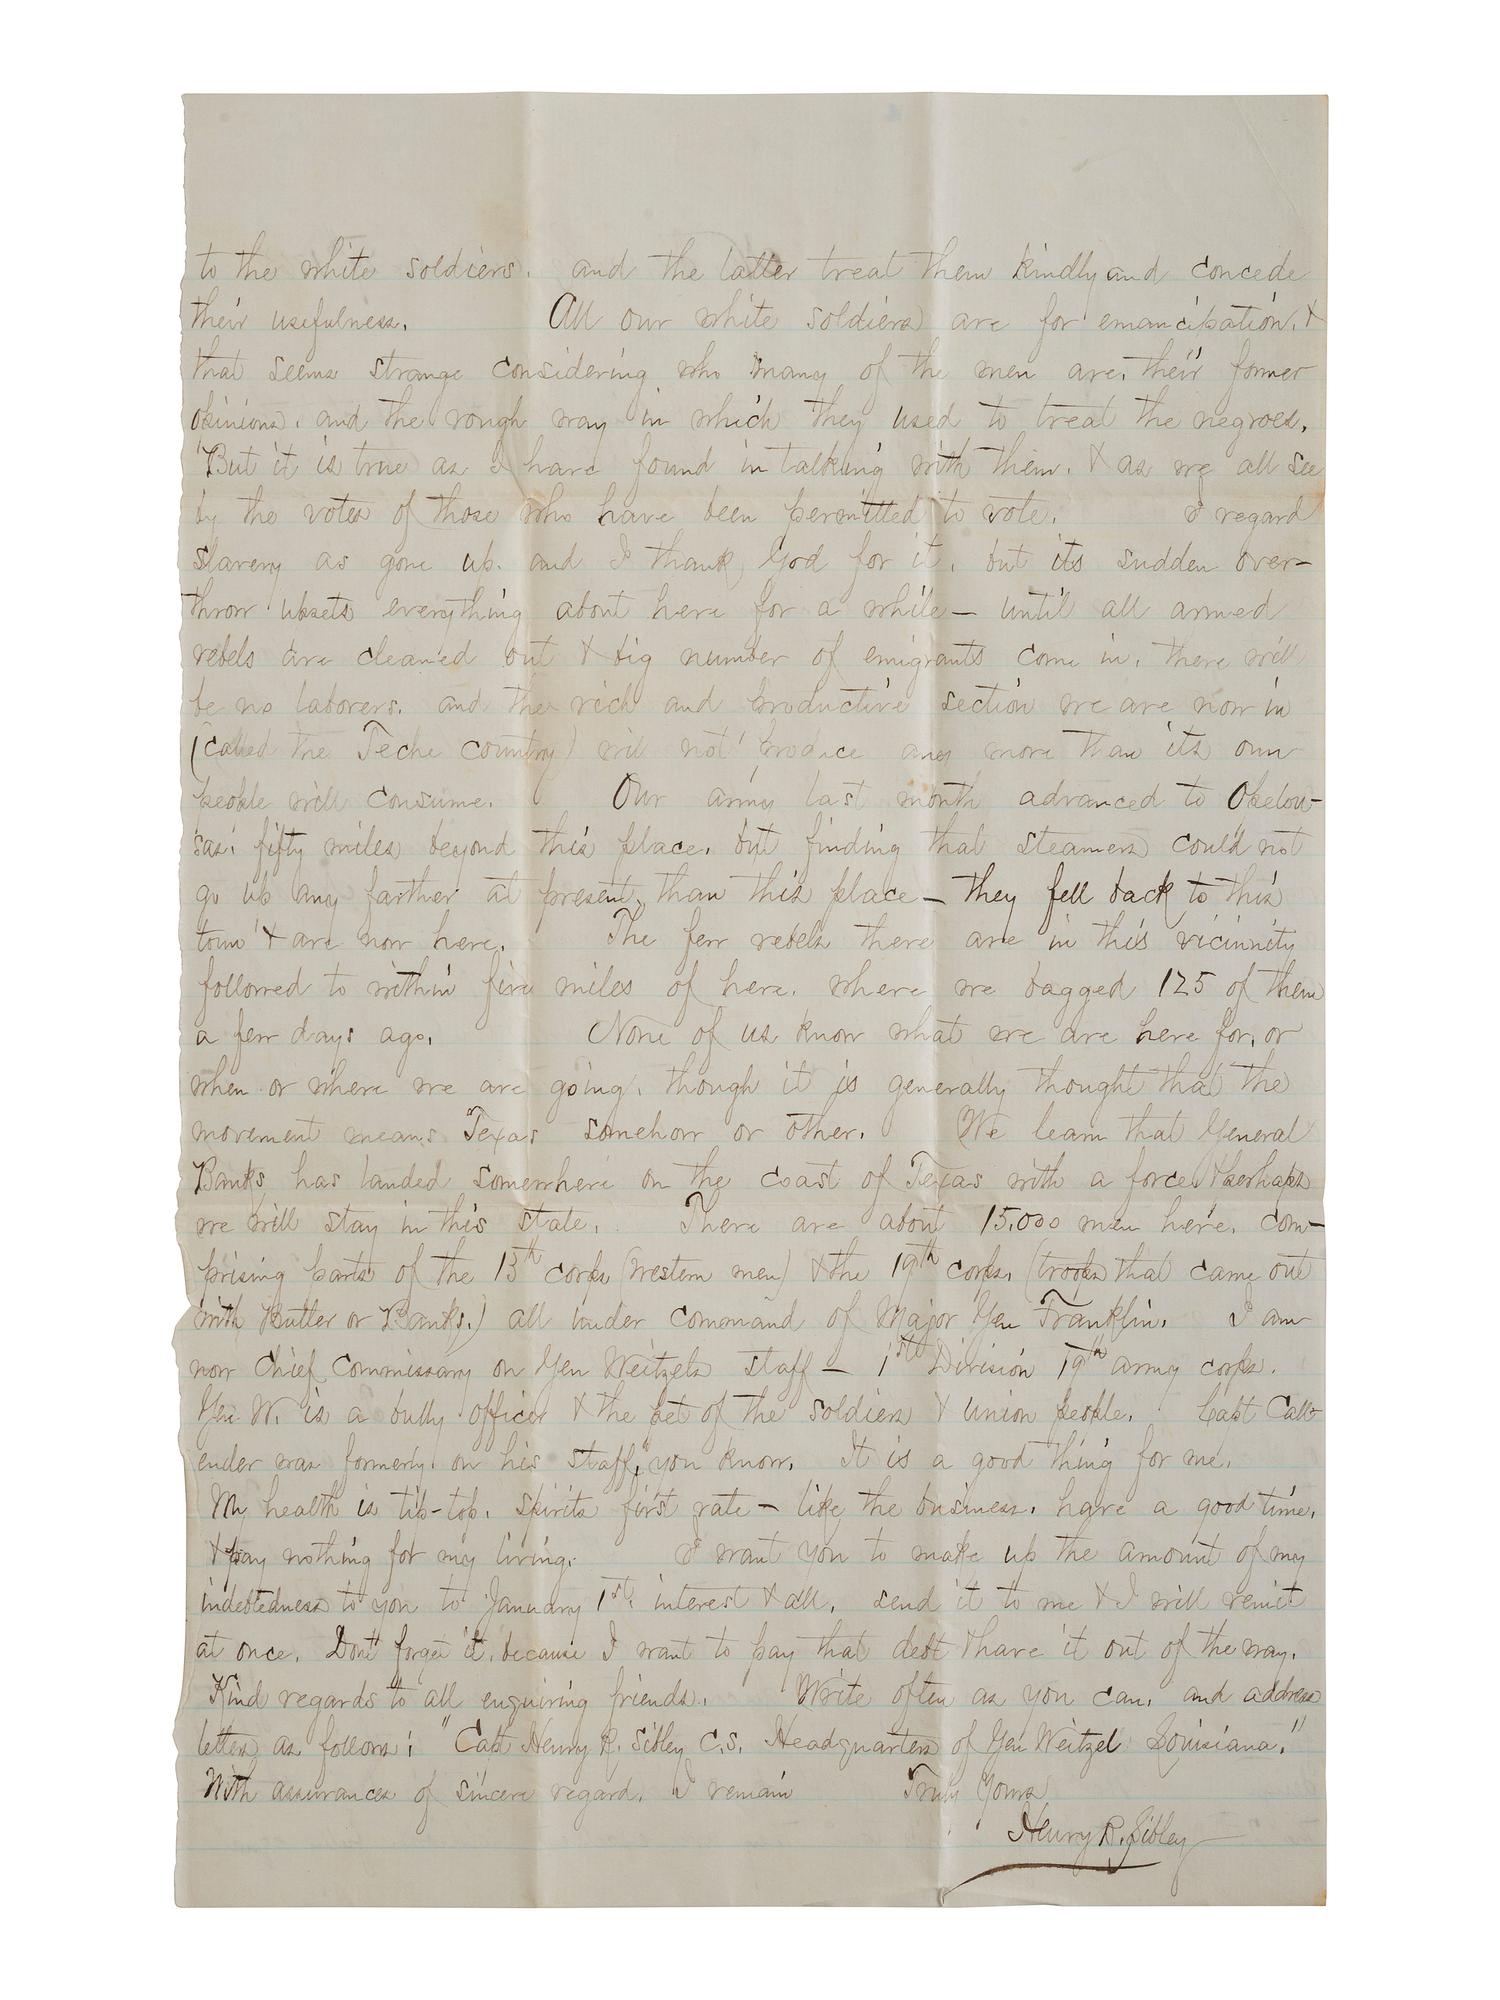 to the white soldiers. and the latter treat them kindly and concede
their usefulness. All our white soldiers are for emancipation, &
that seems strange considering who many of the men are, their former
opinions, and the rough way in which they used to treat the negroes.
But it is true as I have found in talking with them, & as we all see
by the votes of those who have been permitted to vote. I regard
slavery as gone up. and I thank God for it, but its sudden over-
throw upsets everything about here for a while — until all armed
rebels are cleaned out & big number of emigrants come in, there will
be no laborers. and the rich and productive section we are now in
(called the Teche country) will not produce any more than its own
people will consume. Our army last month advanced to Opelou-
sas, fifty miles beyond this place, but finding that steamers could not
go up any farther at present, than this place — they fell back to this
town & are now here. The few rebels there are in this vicinnity
followed to within five miles of here, where we bagged 125 of them
a few days ago. None of us know what we are here for, or
when or where we are going, though it is generally thought that the
movement means Texas somehow or other. We learn that General
Banks has landed somewhere on the coast of Texas with a force, & perhaps
we will stay in this state. There are about 15,000 men here, com-
prising parts of the 13th corps (western men) & the 19th corps, (troops that came out
with Butler or Banks.) all under command of Major Gen Franklin. I am
now Chief Commissary on Gen Weitzels staff — 1st Division 19th army corps.
Gen W. is a bully officer & the pet of the soldiers & union people. Capt Call-
ender was formerly on his staff, you know. It is a good thing for me.
My health is tip-top, spirits first rate — like the business, have a good time,
& pay nothing for my living. I want you to make up the amount of my
indebtedness to you to January 1st, interest & all, send it to me & I will remit
at once. Dont forget it, because I want to pay that debt & have it out of the way.
Kind regards to all enquiring friends. Write often as you can, and address
letters as follows: "Capt Henry R. Sibley C.S. Headquarters of Gen Weitzel Louisiana."
With assurances of sincere regard, I remain Truly Yours
Henry R. Sibley